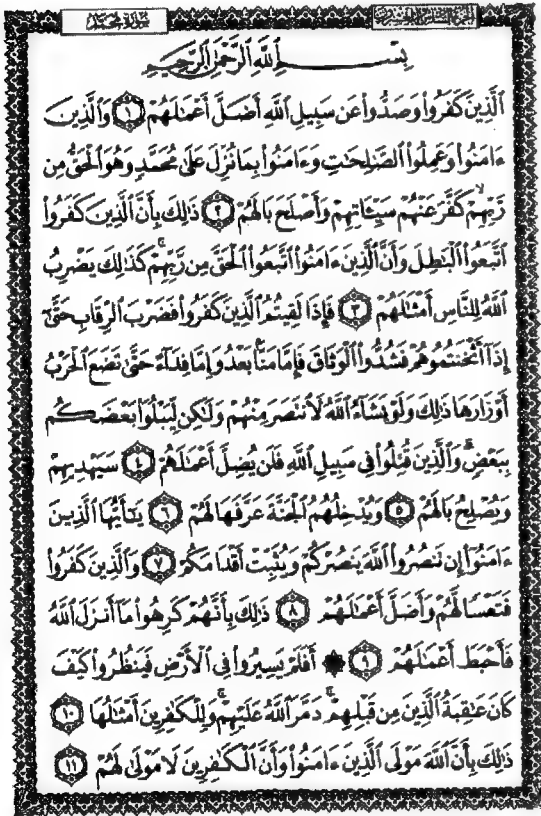 سورة محمد الجزء السادس والعشرون
بِسْمِ اللَّهِ الرَّحْمَٰنِ الرَّحِيمِ
الَّذِينَ كَفَرُوا وَصَدُّوا عَن سَبِيلِ اللَّهِ أَضَلَّ أَعْمَالَهُمْ ١ وَالَّذِينَ
ءَامَنُوا وَعَمِلُوا الصَّالِحَاتِ وَءَامَنُوا بِمَا نُزِّلَ عَلَىٰ مُحَمَّدٍ وَهُوَ الْحَقُّ مِن
رَّبِّهِمْ كَفَّرَ عَنْهُمْ سَيِّئَاتِهِمْ وَأَصْلَحَ بَالَهُمْ ٢ ذَٰلِكَ بِأَنَّ الَّذِينَ كَفَرُوا
اتَّبَعُوا الْبَاطِلَ وَأَنَّ الَّذِينَ ءَامَنُوا اتَّبَعُوا الْحَقَّ مِن رَّبِّهِمْ كَذَٰلِكَ يَضْرِبُ
اللَّهُ لِلنَّاسِ أَمْثَالَهُمْ ٣ فَإِذَا لَقِيتُمُ الَّذِينَ كَفَرُوا فَضَرْبَ الرِّقَابِ حَتَّىٰ
إِذَا أَثْخَنتُمُوهُمْ فَشُدُّوا الْوَثَاقَ فَإِمَّا مَنًّا بَعْدُ وَإِمَّا فِدَاءً حَتَّىٰ تَضَعَ الْحَرْبُ
أَوْزَارَهَا ذَٰلِكَ وَلَوْ يَشَاءُ اللَّهُ لَانتَصَرَ مِنْهُمْ وَلَٰكِن لِّيَبْلُوَا بَعْضَكُم
بِبَعْضٍ وَالَّذِينَ قُتِلُوا فِي سَبِيلِ اللَّهِ فَلَن يُضِلَّ أَعْمَالَهُمْ ٤ سَيَهْدِيهِمْ
وَيُصْلِحُ بَالَهُمْ ٥ وَيُدْخِلُهُمُ الْجَنَّةَ عَرَّفَهَا لَهُمْ ٦ يَا أَيُّهَا الَّذِينَ
ءَامَنُوا إِن تَنصُرُوا اللَّهَ يَنصُرْكُمْ وَيُثَبِّتْ أَقْدَامَكُمْ ٧ وَالَّذِينَ كَفَرُوا
فَتَعْسًا لَّهُمْ وَأَضَلَّ أَعْمَالَهُمْ ٨ ذَٰلِكَ بِأَنَّهُمْ كَرِهُوا مَا أَنزَلَ اللَّهُ
فَأَحْبَطَ أَعْمَالَهُمْ ٩ ۞ أَفَلَمْ يَسِيرُوا فِي الْأَرْضِ فَيَنظُرُوا كَيْفَ
كَانَ عَاقِبَةُ الَّذِينَ مِن قَبْلِهِمْ دَمَّرَ اللَّهُ عَلَيْهِمْ وَلِلْكَافِرِينَ أَمْثَالُهَا ١٠
ذَٰلِكَ بِأَنَّ اللَّهَ مَوْلَى الَّذِينَ ءَامَنُوا وَأَنَّ الْكَافِرِينَ لَا مَوْلَىٰ لَهُمْ ١١